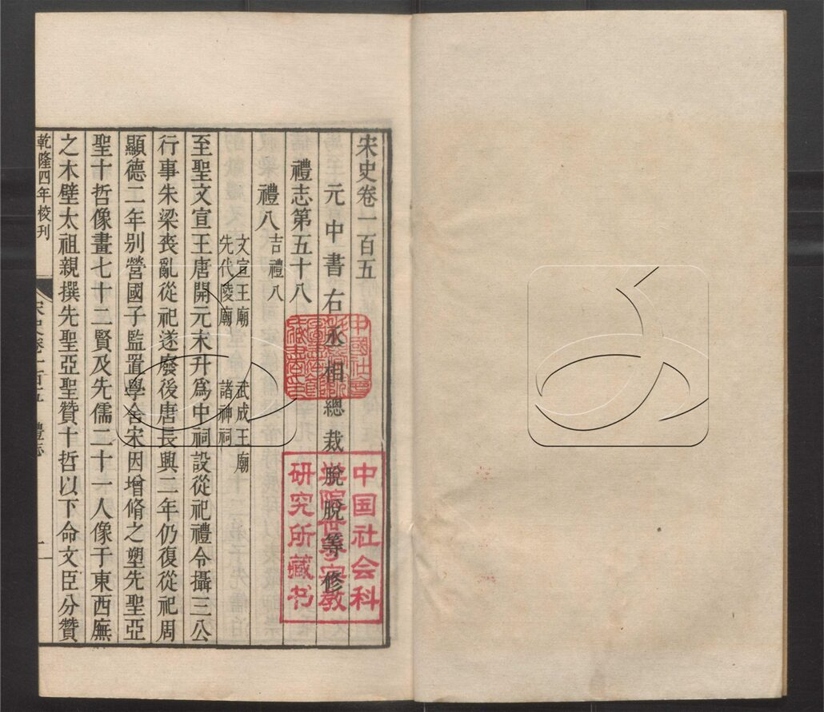 宋史卷一百五
元中書右丞相總裁脫脫等修
禮志第五十八
禮八 吉禮八
文宣王廟 武成王廟
先代陵廟 諸神祠
至聖文宣王唐開元末升爲中祠設從祀禮令攝三公
行事朱梁喪亂從祀遂廢後唐長興二年仍復從祀周
顯德二年別營國子監置學舍宋因增脩之塑先聖亞
聖十哲像畫七十二賢及先儒二十一人像于東西廡
之木壁太祖親撰先聖亞聖贊十哲以下命文臣分贊
乾隆四年校刊
宋史卷一百五 禮志 一
中国社会科
学院世界宗教
研究所藏书